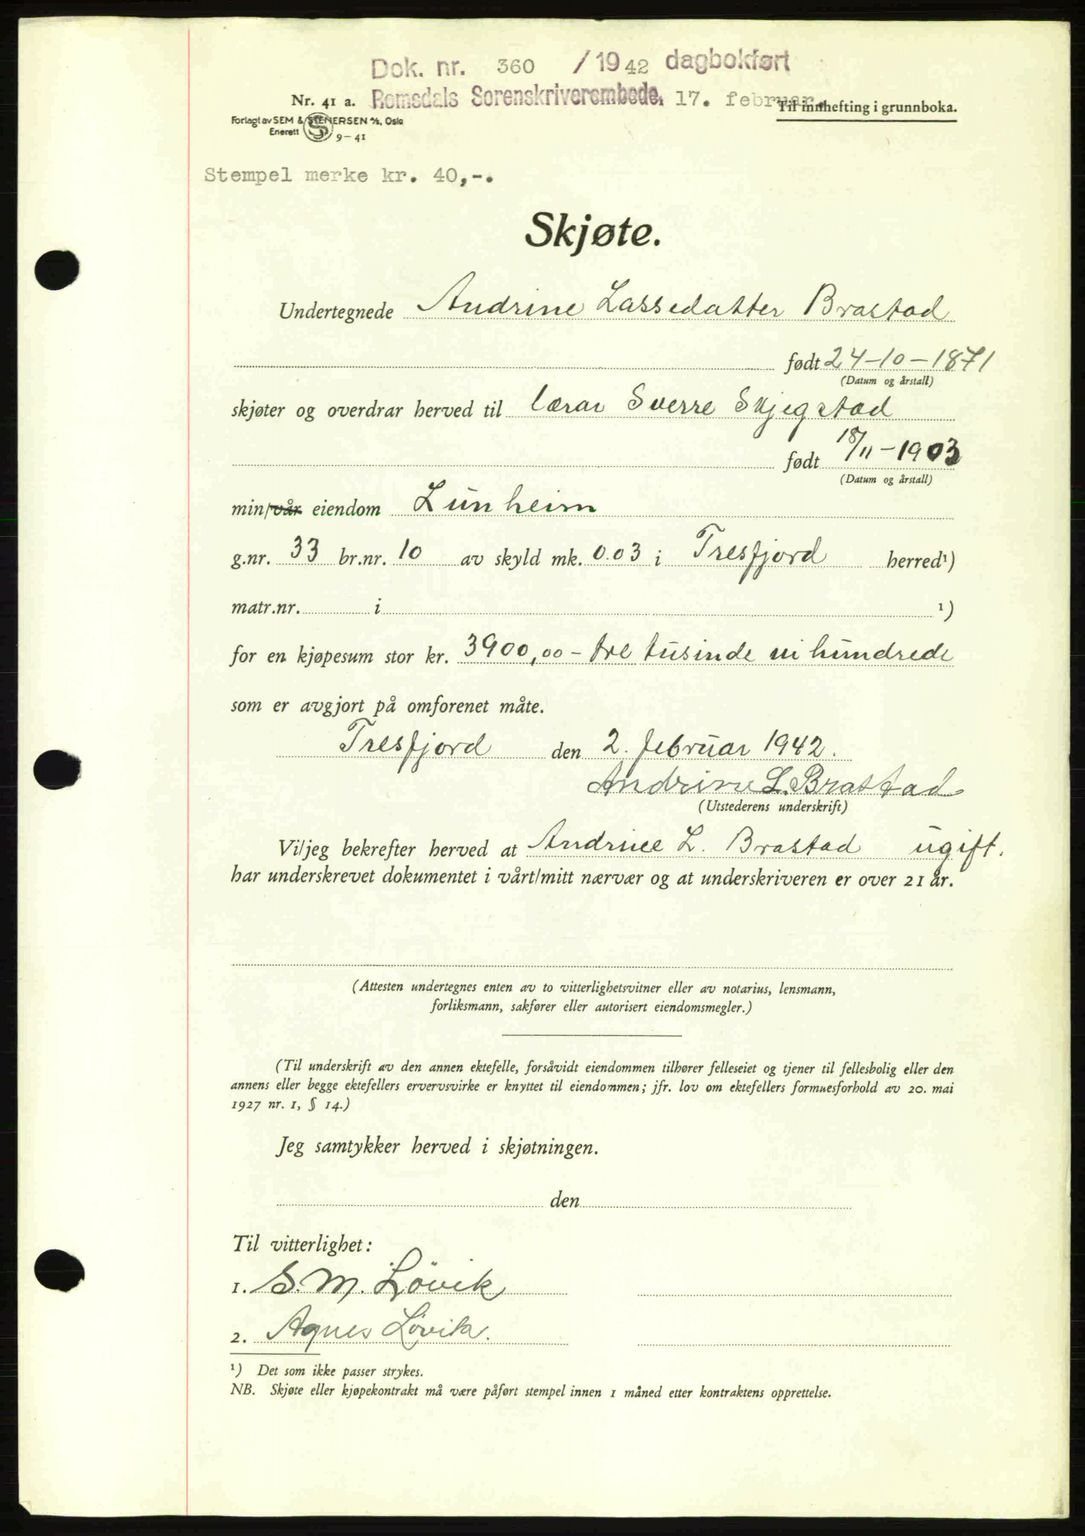 Dok. nr. 360 / 1942 dagbokført
Nr. 41 a. Romsdals Sorenskriverembede, 17. februar. Til innhefting i grunnboka.
Forlagt av SEM & STENERSEN A/S, Oslo
Enerett 9-41
Stempel merke kr. 40,-.
Skjøte.
Undertegnede Andrine Lassedatter Brastad
født 24-10-1871
(Datum og årstall)
skjøter og overdrar herved til lærar Sverre Skjegstad
født 18/11-1903
(Datum og årstall)
min/vår eiendom Lünheim
g.nr. 33 br.nr. 10 av skyld mk. 0.03 i Tresfjord herred¹)
matr.nr. i ¹)
for en kjøpesum stor kr. 3900,00 - tre tusinde ni hundrede
som er avgjort på omforenet måte.
Tresfjord den 2. februar 1942.
Andrine L. Brastad
(Utstederens underskrift)
Vi/jeg bekrefter herved at Andrine L. Brastad ugift.
har underskrevet dokumentet i vårt/mitt nærvær og at underskriveren er over 21 år.
(Attesten undertegnes enten av to vitterlighetsvitner eller av notarius, lensmann,
forliksmann, sakfører eller autorisert eiendomsmegler.)
(Til underskrift av den annen ektefelle, forsåvidt eiendommen tilhører felleseiet og tjener til fellesbolig eller den
annens eller begge ektefellers ervervsvirke er knyttet til eiendommen; jfr. lov om ektefellers formuesforhold av 20. mai
1927 nr. 1, § 14.)
Jeg samtykker herved i skjøtningen.
den
Til vitterlighet:
1. S. M. Lövik
2. Agnes Løvik.
¹) Det som ikke passer strykes.
NB. Skjøte eller kjøpekontrakt må være påført stempel innen 1 måned etter kontraktens opprettelse.